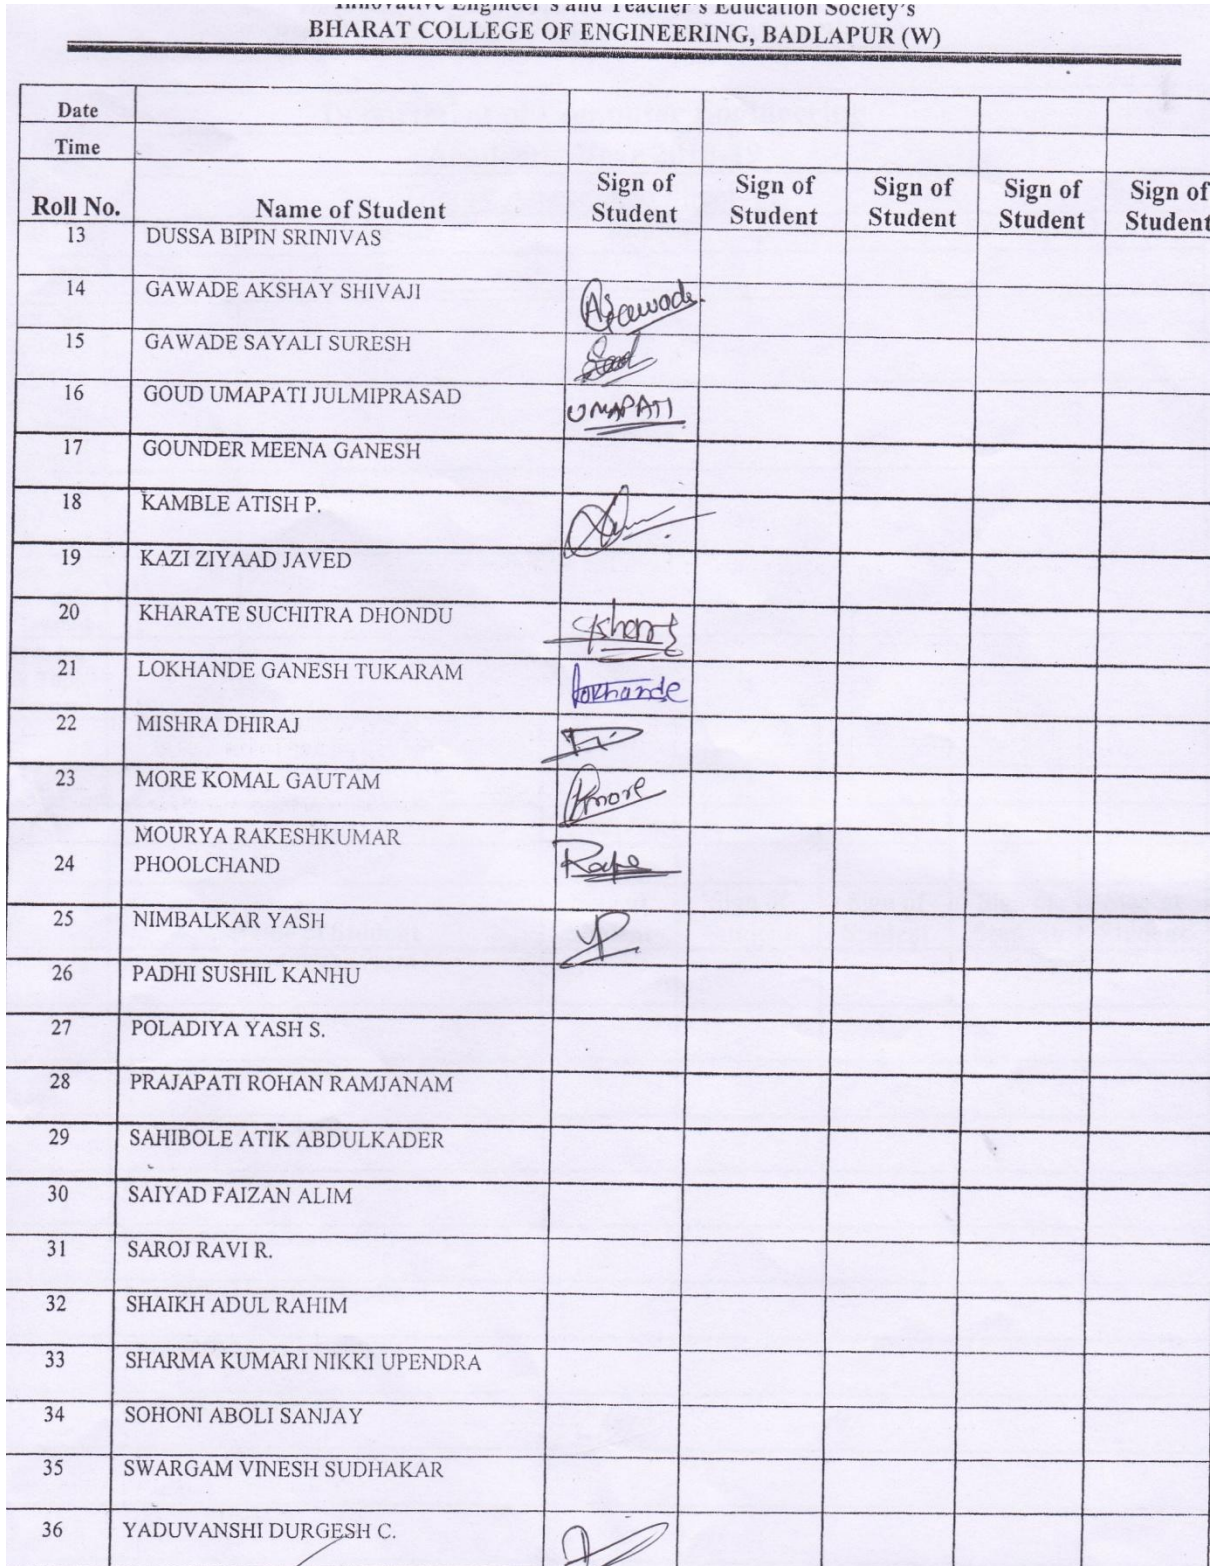 Innovative Engineer's and Teacher's Education Society's
BHARAT COLLEGE OF ENGINEERING, BADLAPUR (W)
Date
Time
Roll No. Name of Student Sign of Student Sign of Student Sign of Student Sign of Student Sign of Student
13 DUSSA BIPIN SRINIVAS
14 GAWADE AKSHAY SHIVAJI
15 GAWADE SAYALI SURESH
16 GOUD UMAPATI JULMIPRASAD UMAPATI
17 GOUNDER MEENA GANESH
18 KAMBLE ATISH P.
19 KAZI ZIYAAD JAVED
20 KHARATE SUCHITRA DHONDU
21 LOKHANDE GANESH TUKARAM lokhande
22 MISHRA DHIRAJ
23 MORE KOMAL GAUTAM
24 MOURYA RAKESHKUMAR
PHOOLCHAND
25 NIMBALKAR YASH
26 PADHI SUSHIL KANHU
27 POLADIYA YASH S.
28 PRAJAPATI ROHAN RAMJANAM
29 SAHIBOLE ATIK ABDULKADER
30 SAIYAD FAIZAN ALIM
31 SAROJ RAVI R.
32 SHAIKH ADUL RAHIM
33 SHARMA KUMARI NIKKI UPENDRA
34 SOHONI ABOLI SANJAY
35 SWARGAM VINESH SUDHAKAR
36 YADUVANSHI DURGESH C.